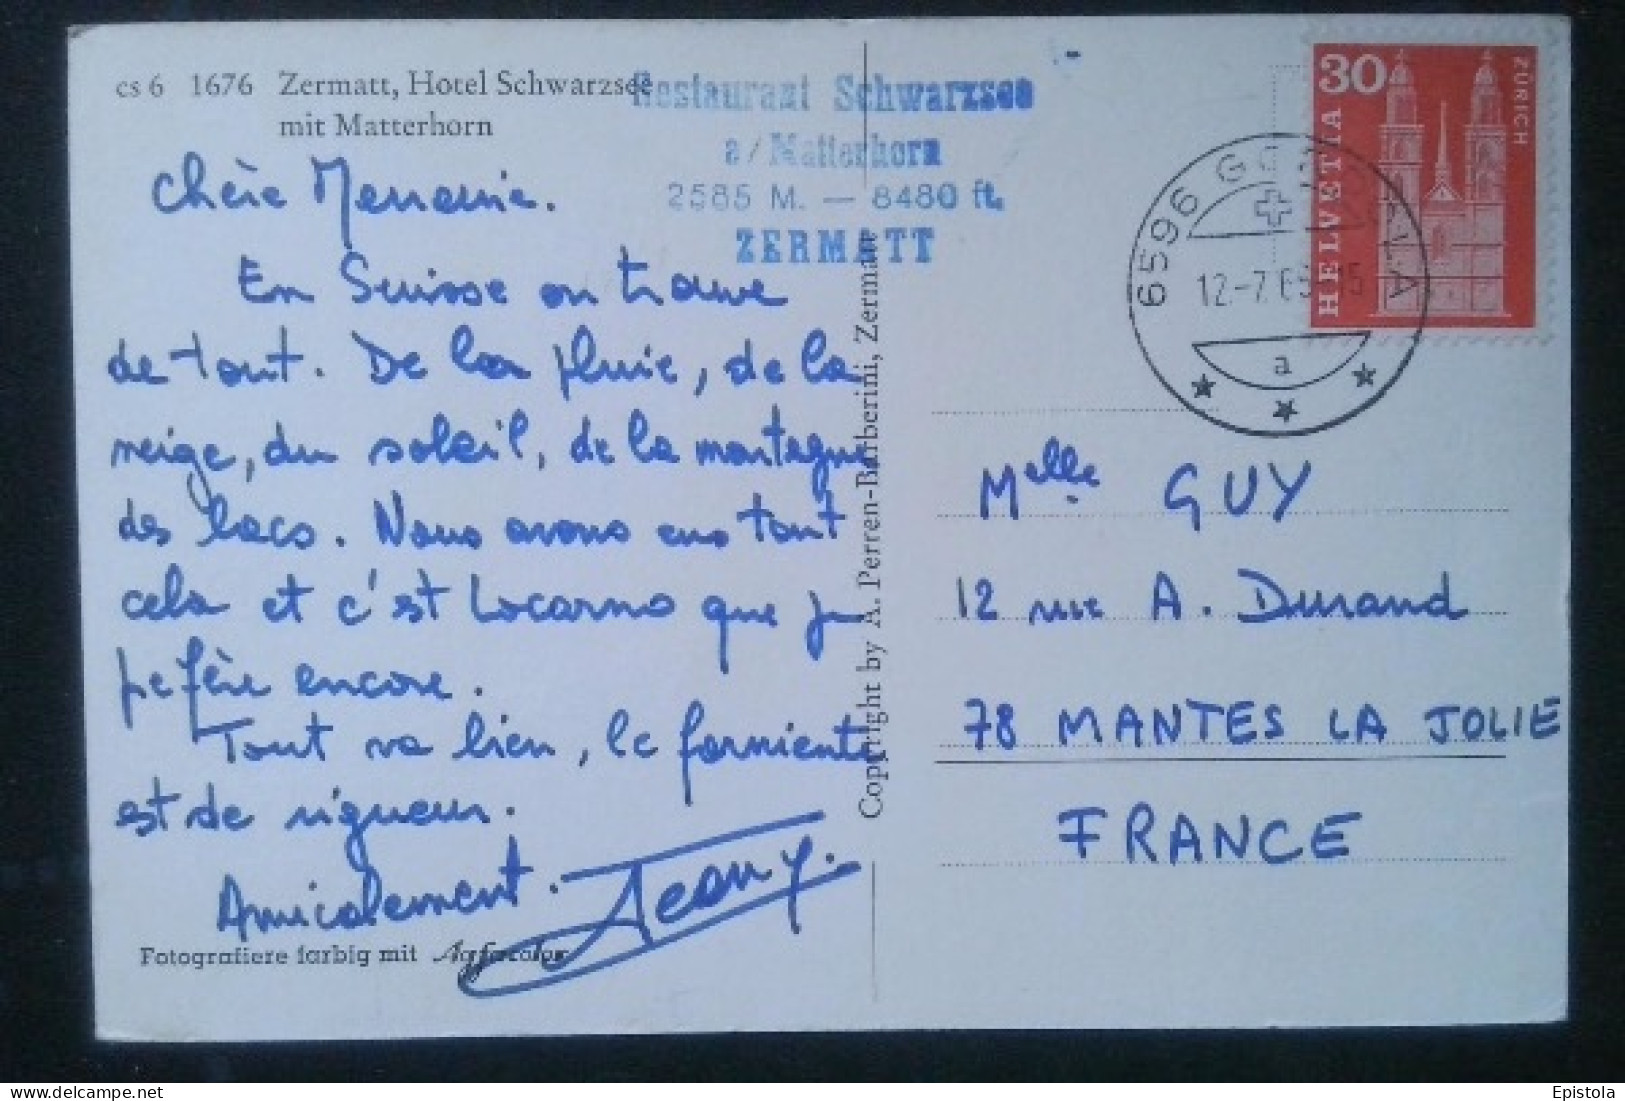 cs 6 1676 Zermatt, Hotel Schwarzsee
mit Matterhorn
Restaurant Schwarzsee
a/Matterhorn
2585 M. — 8480 ft.
ZERMATT
Chère
En Suisse on trouve
de tout. De la pluie, de la
neige, du soleil, de la montagne
des lacs. Nous avons eus tout
cela et c'est Locarno que je
préfère encore.
Tout va bien, le farniente
est de rigueur.
Amicalement.
Jeany.
Fotografiere farbig mit Agfacolor
Copyright by A. Perren-Barberini, Zermatt
30
ZÜRICH
HELVETIA
6596 GORDOLA
12.-7.65 15
a
Melle GUY
12 rue A. Durand
78 MANTES LA JOLIE
FRANCE
Epistola